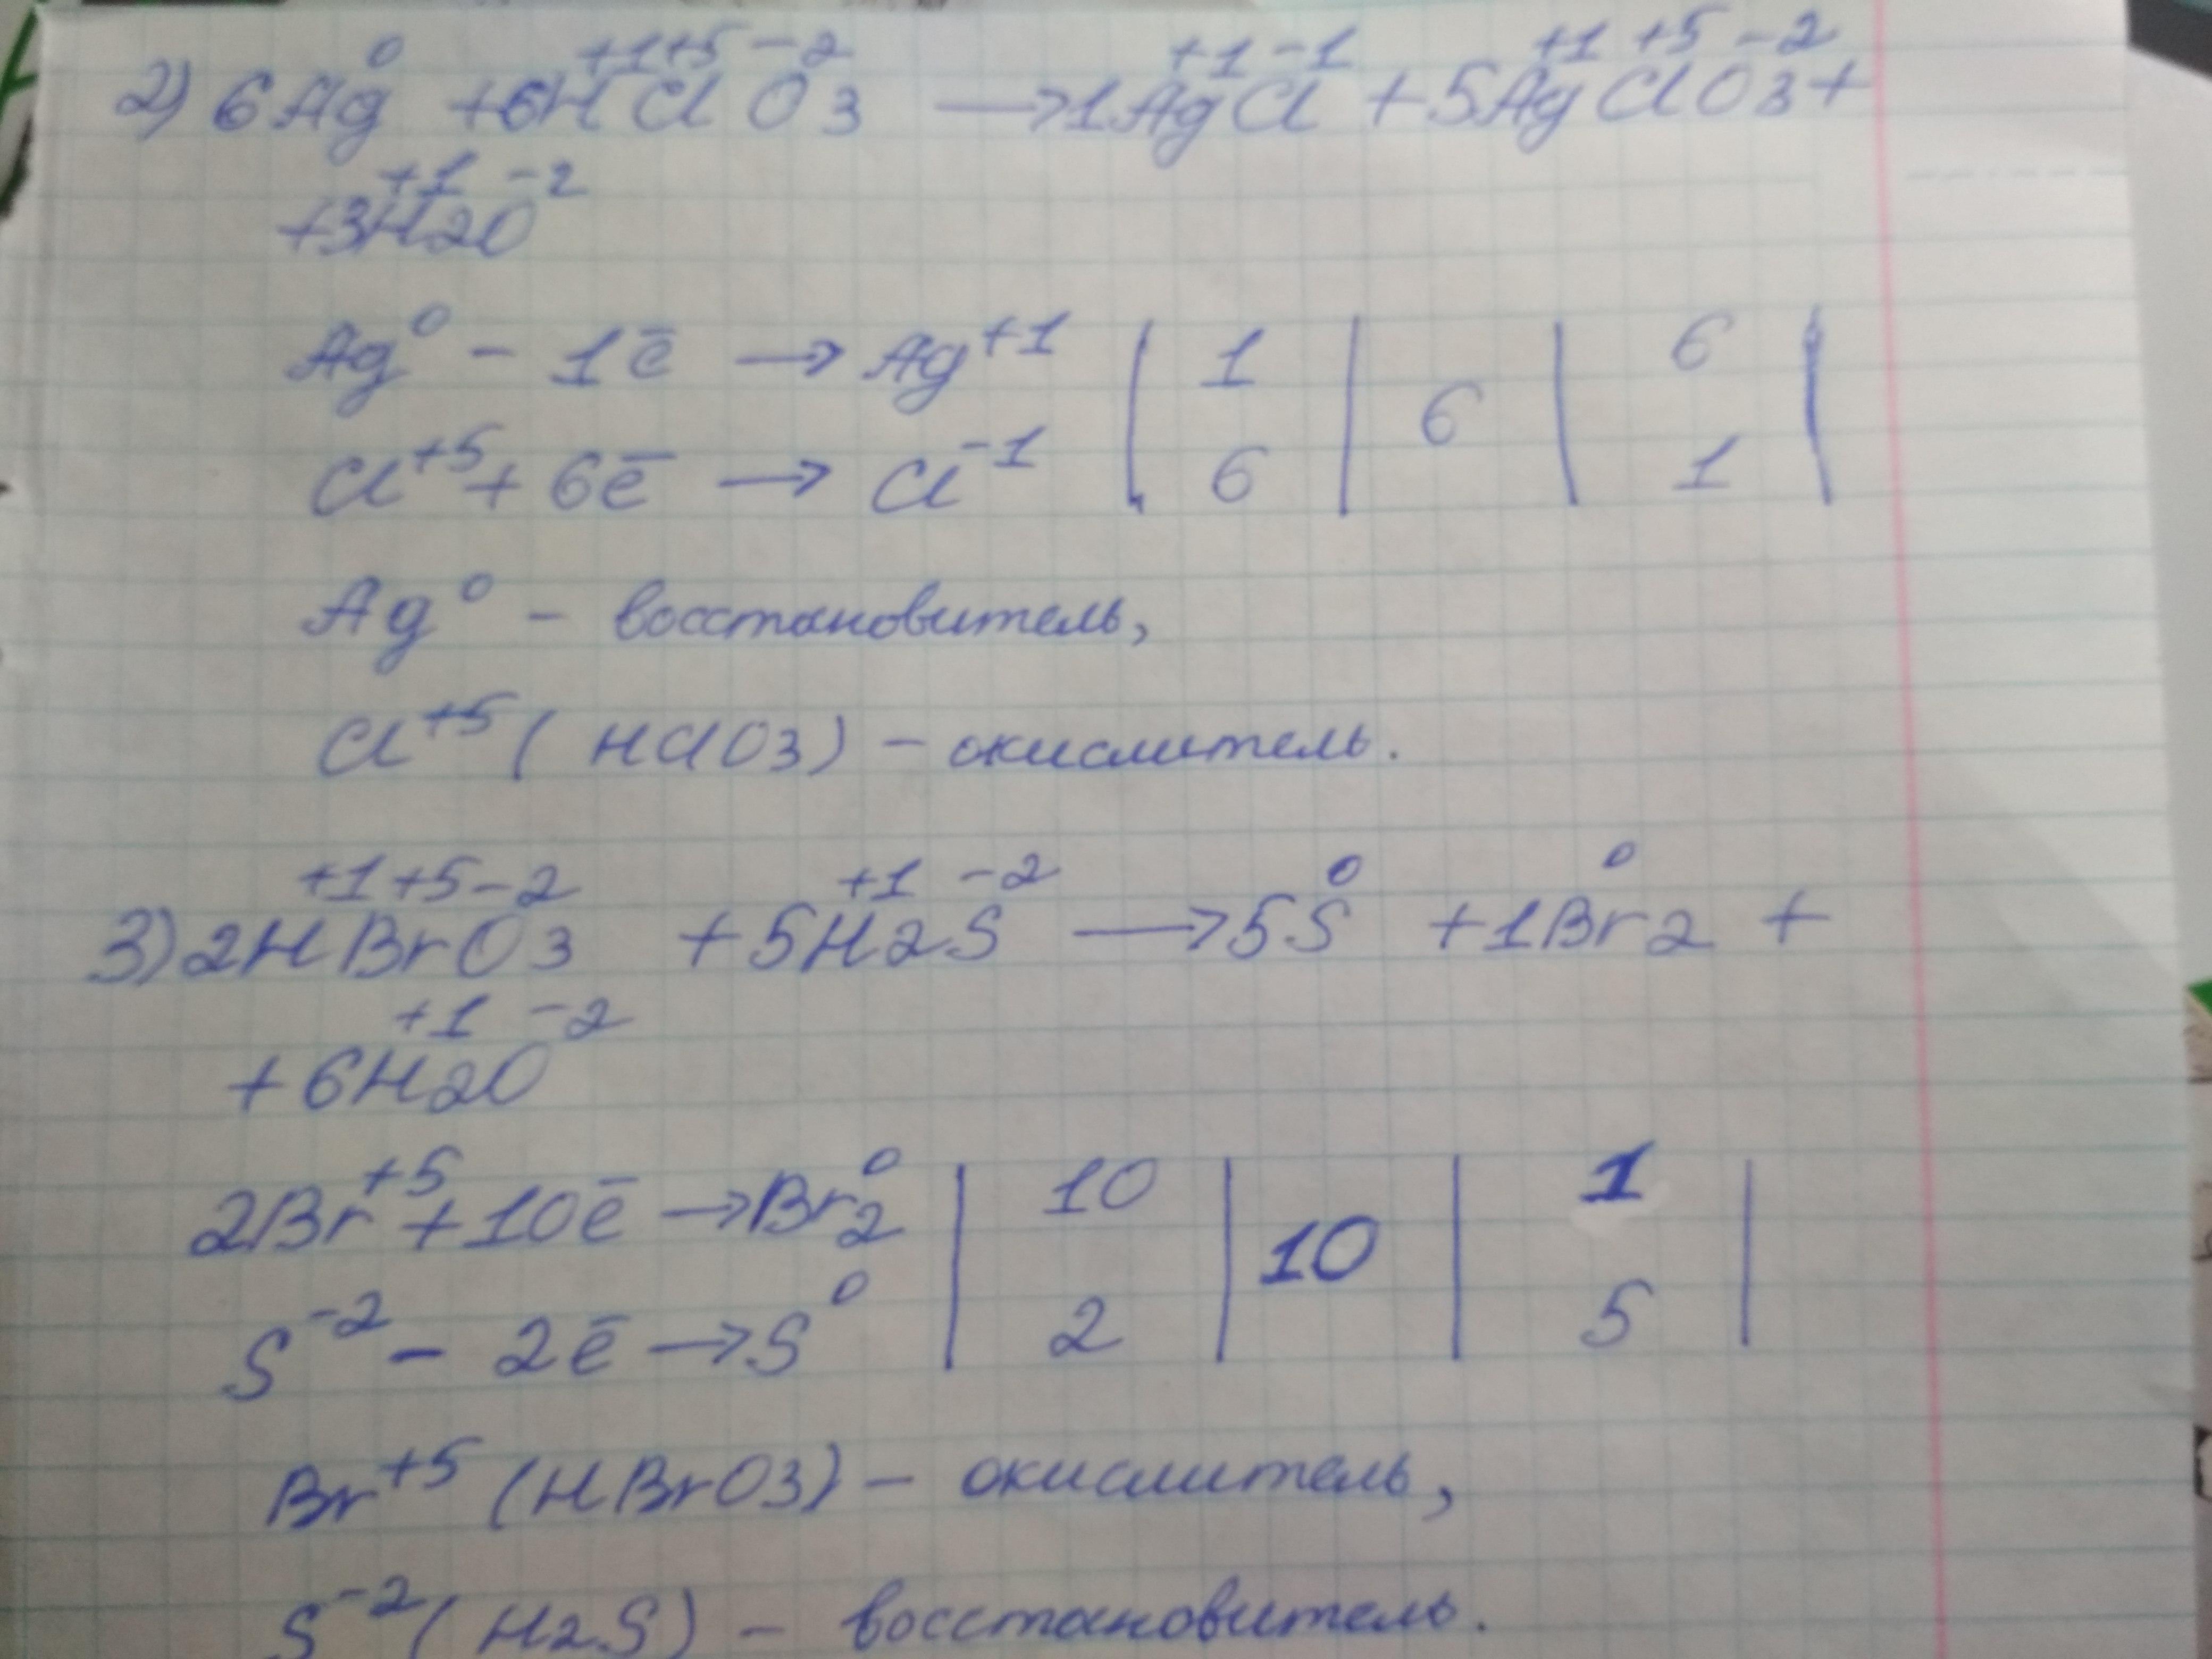 2) 6Ag⁰ + 6H⁺¹Cl⁺⁵O₃⁻² → 1Ag⁺¹Cl⁻¹ + 5Ag⁺¹Cl⁺⁵O₃⁻² +
+ 3H₂⁺¹O⁻²
Ag⁰ - 1ē → Ag⁺¹ | 1 | 6 | 6 |
Cl⁺⁵ + 6ē → Cl⁻¹ | 6 | | 1 |
Ag⁰ - восстановитель,
Cl⁺⁵ (HClO3) - окислитель.
3) 2H⁺¹Br⁺⁵O₃⁻² + 5H₂⁺¹S⁻² → 5S⁰ + 1Br₂⁰ +
+ 6H₂⁺¹O⁻²
2Br⁺⁵ + 10ē → Br₂⁰ | 10 | 10 | 1 |
S⁻² - 2ē → S⁰ | 2 | | 5 |
Br⁺⁵ (HBrO3) - окислитель,
S⁻² (H2S) - восстановитель.